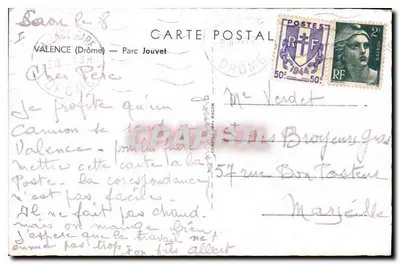 Saou le 8
CARTE POSTALE
VALENCE (Drôme) — Parc Jouvet
POSTES
RF
1944
50c 50c
2F
RF
DROME
Cher Père
Je profite qu'un
Camion de
Valence pour
mettre cette carte à la
Poste. la corespondance
n'est pas facile.
Il ne fait pas chaud.
mais on mange bien.
J'espère que le travail ne
ennue pas trop. ton fils albert
Mr Verdet
des Broyeurs Gras
57 rue Bon Pasteur
Marseille